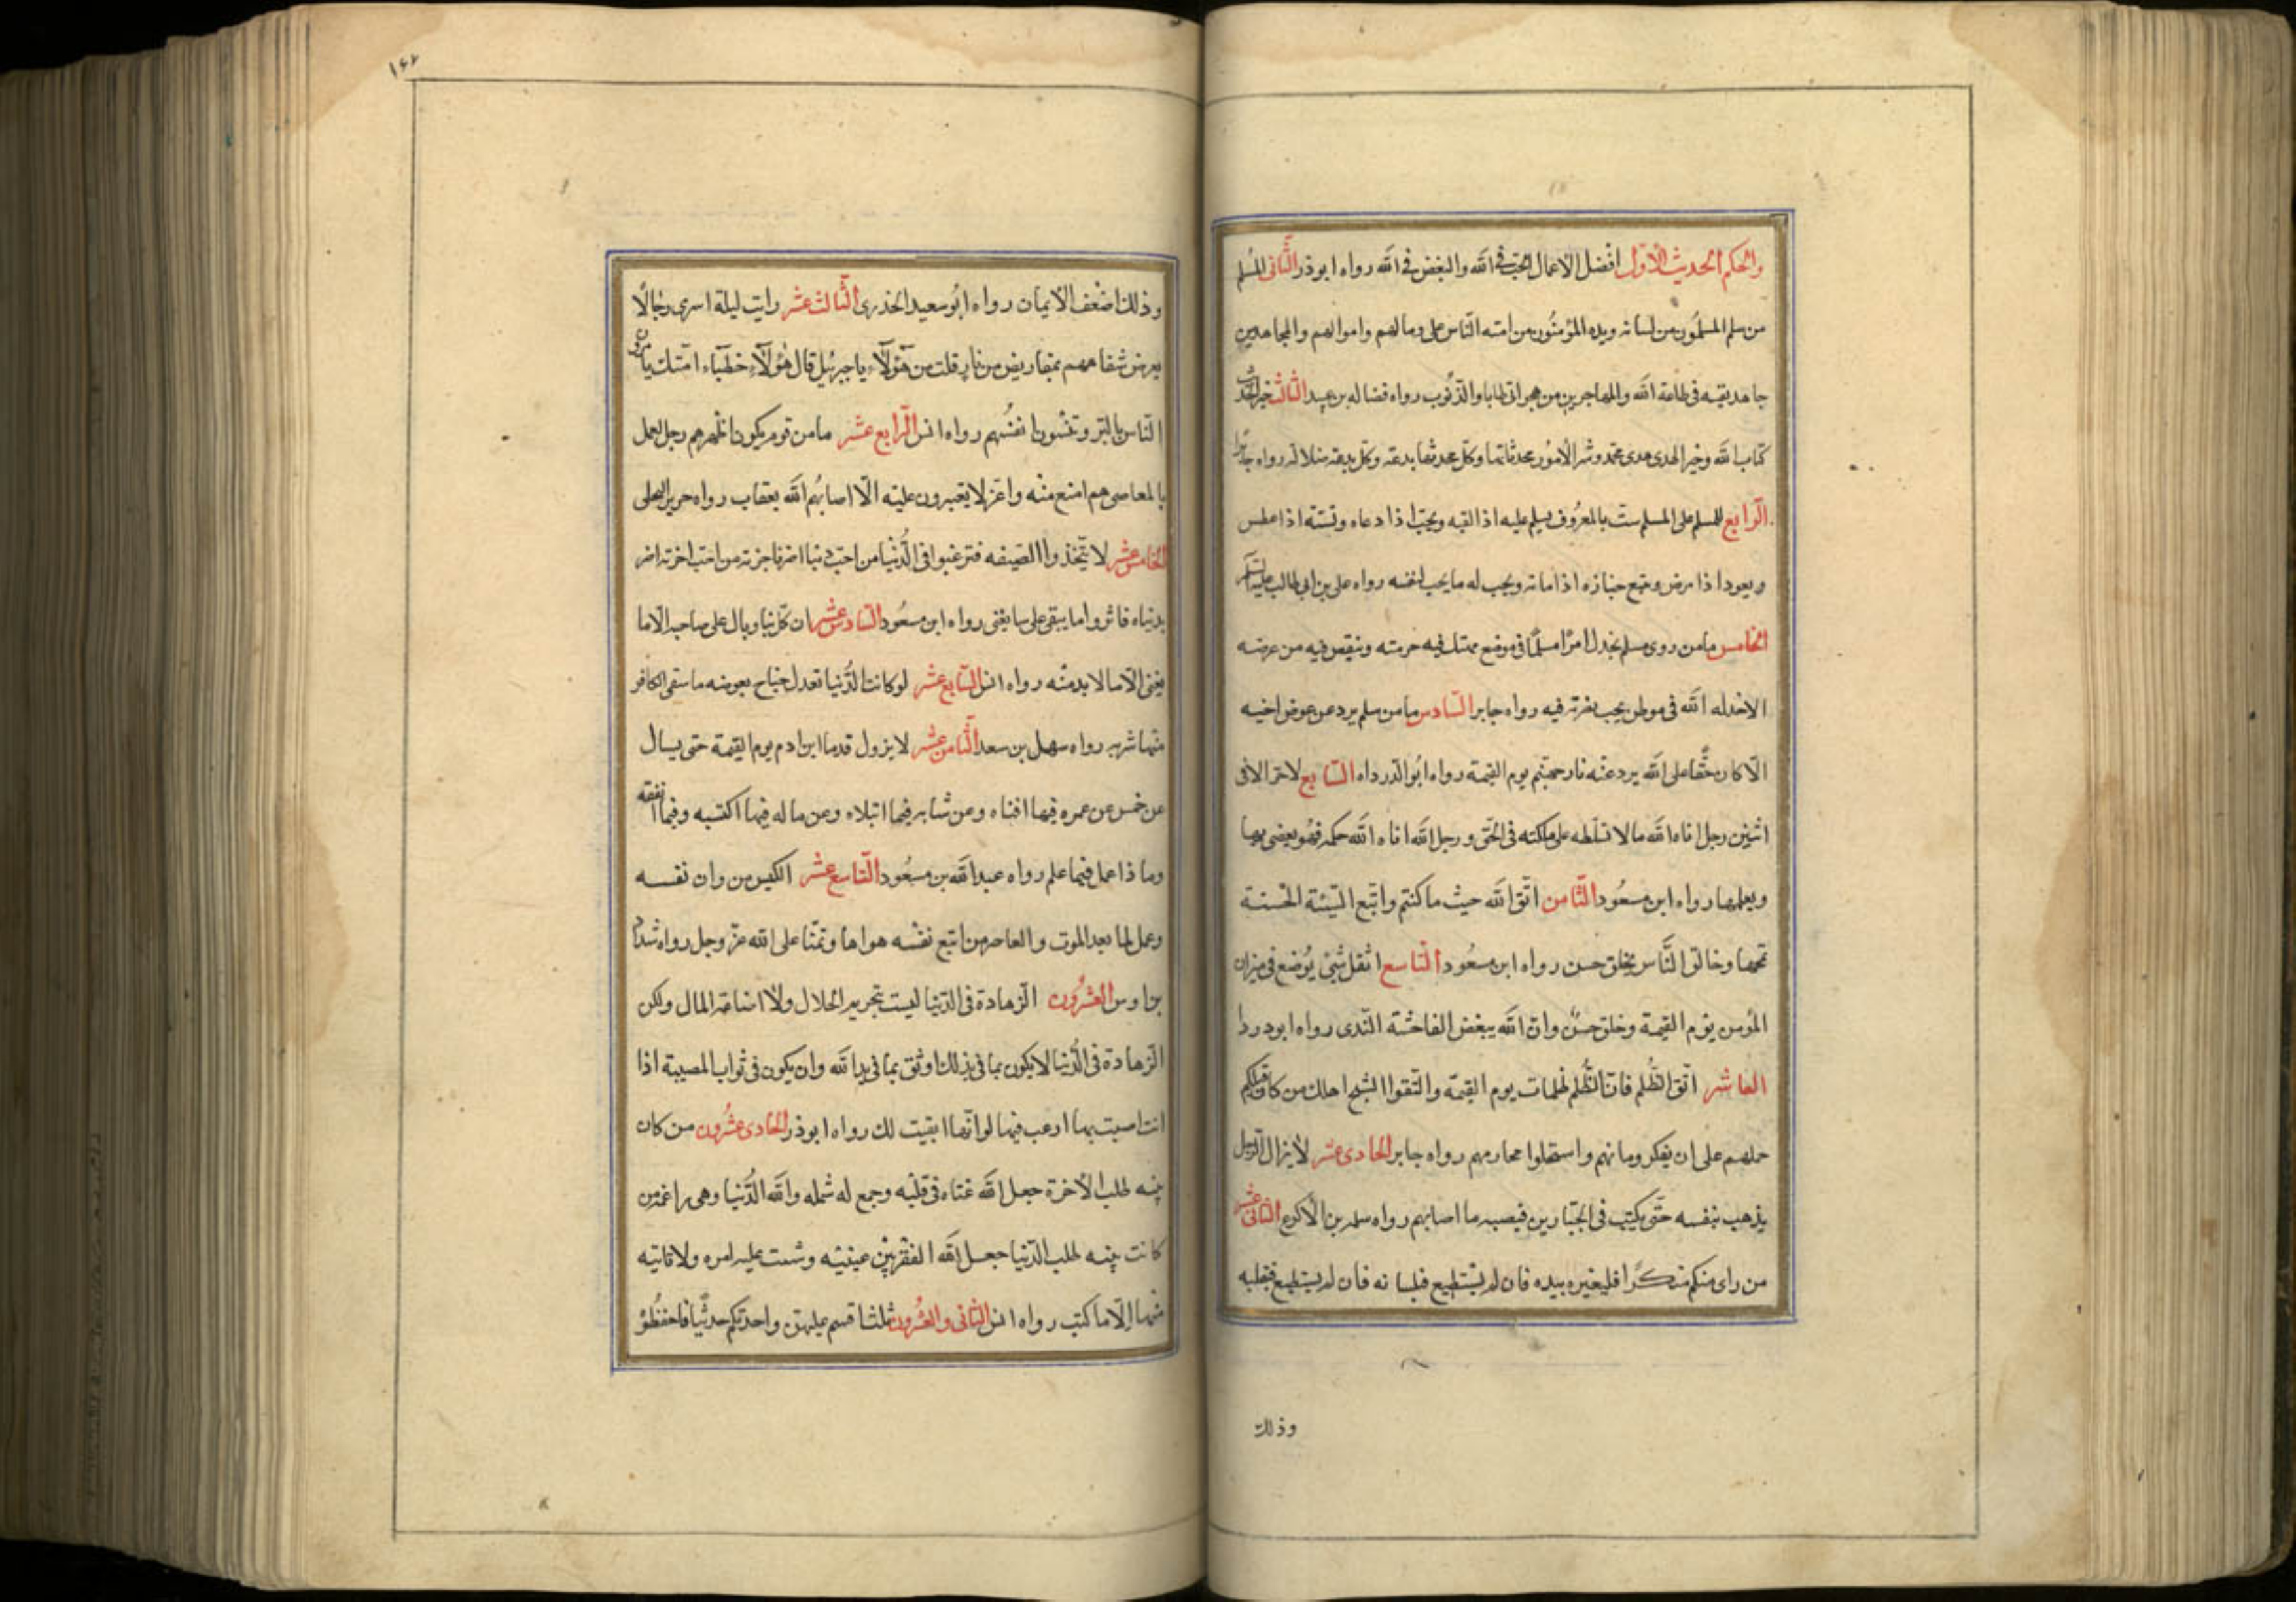 والحكم الحديث الأول افضل الاعمال الحب فى الله والبغض فى الله رواه ابوذر الثانى المسلم
من سلم المسلمون من لسانه ويده المؤمنون من امنه الناس على دمائهم واموالهم والمجاهدين
جاهد بنفسه فى طاعة الله والمهاجرين من هجر الخطايا والذنوب رواه فضاله بن عبيد الثالث خير الحديث
كتاب الله وخير الهدى هدى محمد وشر الأمور محدثاتها وكل محدثها بدعة وكل بدعة ضلالة رواه جابر
الرابع للمسلم على المسلم ست بالمعروف يسلم عليه اذا لقيه ويجيب اذا دعاه وتشمته اذا عطس
ويعود اذا مرض وتتبع جنازه اذا مات ويحب له ما يحب لنفسه رواه على بن ابى طالب عليه السلم
الخامس مامن روى مسلم يخذل امرا مسلما فى موضع يمتك فيه حرمته وينقص فيه من عرضه
الا خذله الله فى موطن يحب نصرته فيه رواه جابر السادس مامن مسلم يرد عن عرض اخيه
الا كان حقا على الله يرد عنه نار جهنم يوم القيمة رواه ابو الدرداه السابع لاخر الا فى
اثنين رجل اتاه الله مالا فسلطه على هلكته فى الحق ورجل الله اتاه الله حكمه فهو يقضى بها
ويعلمها رواه ابن مسعود الثامن اتق الله حيث ما كنتم واتبع السيئة الحسنة
تمحها وخالق الناس بخلق حسن رواه ابن مسعود التاسع اثقل شئ يوضع فى ميزان
المؤمن يوم القيمة وخلق حسن وان الله يبغض الفاحشة الندى رواه ابودردا
العاشر اتق الظلم فان الظلم ظلمات يوم القيمة والتقوا الشح اهلك من كان قبلكم
حملهم على ان يفكر ومانهم واستحلوا محارمهم رواه جابر الحادى عشر لا يزال الرجل
يذهب بنفسه حتى يكتب فى الجبارين فيصيبه ما اصابهم رواه سلمه بن الأكوع الثانى عشر
من راى منكم منكرا فليغيره بيده فان لم يستطيع فبلسانه فان لم يستطيع فبقلبه
وذلك
١٤٢
وذلك اضعف الايمان رواه ابو سعيد الخدرى الثالث عشر رايت ليلة اسرى رجالا
يعرض شفاههم بمقاريض من نار قلت من هؤلاء يا جبرئيل قال هؤلاء خطباء امتك يامرون
الناس بالبر وتنسون انفسهم رواه انس الرابع عشر مامن قوم يكون اظهرهم رجل يعمل
بالمعاصى هم امنع منه واعز لا يغيرون عليه الا اصابهم الله بعقاب رواه حرير البجلى
الخامس عشر لا تتخذوا الضيغه فترغبوا فى الدنيا من احب دنيا اضر باخرته من احب اخرته اضر
بدنياه فاثروا ما يبقى على ما يفنى رواه ابن مسعود السادس عشر ان كل بنا وبال على صاحبه الا ما
يغنى الا ما لا بد منه رواه انس السابع عشر لو كانت الدنيا تعدل جناح بعوضه ما سقى الكافر
منها شربه رواه سهل بن سعد الثامن عشر لا يزول قدما ابن ادم يوم القيمة حتى يسال
عن خمس عن عمره فيها افناه وعن شبابه فيما ابتلاه وعن ماله فيها اكتسبه وفيما انفقه
وما ذا عمل فيما علم رواه عبد الله بن مسعود التاسع عشر الكيس من دان نفسه
وعمل لما بعد الموت والعاجز من اتبع نفسه هواها وتمنا على الله عز وجل رواه شداد
بن اوس العشرون الزهادة فى الدنيا ليست بتحريم الحلال ولا اضاعة المال ولكن
الزهادة فى الدنيا لا يكون بما فى يدك اوثق بما فى يد الله وان يكون فى ثواب المصيبة اذا
انت اصبت بها ارغب فيها لو انها ابقيت لك رواه ابوذر الحادى عشرون من كان
نيته طلب الأخرة جعل الله غناه فى قلبه وجمع له شمله والله الدنيا وهى راغمه من
كانت نيته طلب الدنيا جعل الله الفقر بين عينيه وشتت عليه امره ولا تاتيه
منها الا ما كتب رواه انس الثانى والعشرون ثلثا قسم عليهن واحدثكم حديثا فاحفظو